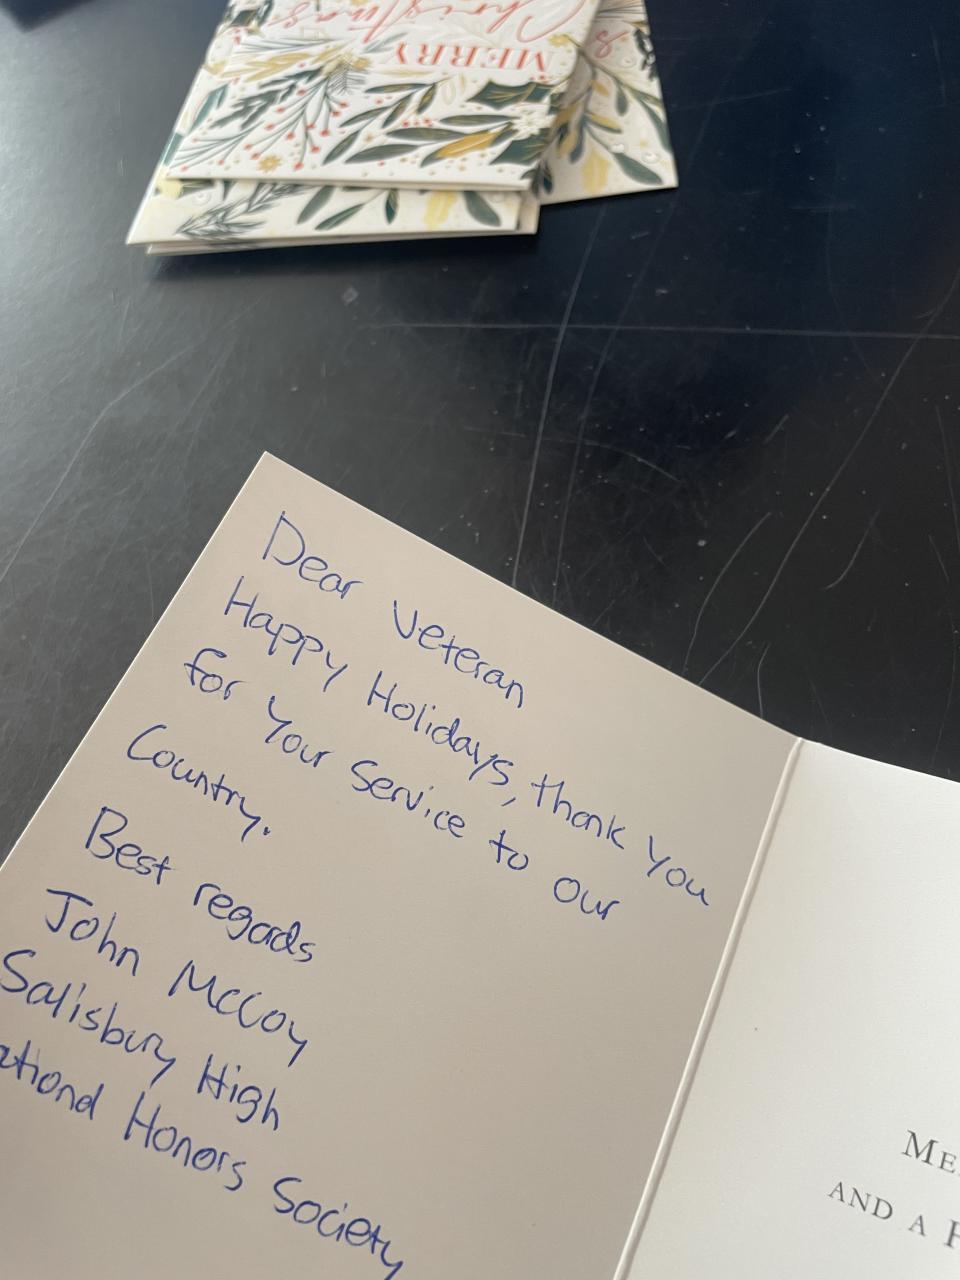 MERRY
Christmas
s
Dear Veteran
Happy Holidays, thank you
for your service to our
Country.
Best regards
John McCoy
Salisbury High
ational Honors Society
ME
AND A